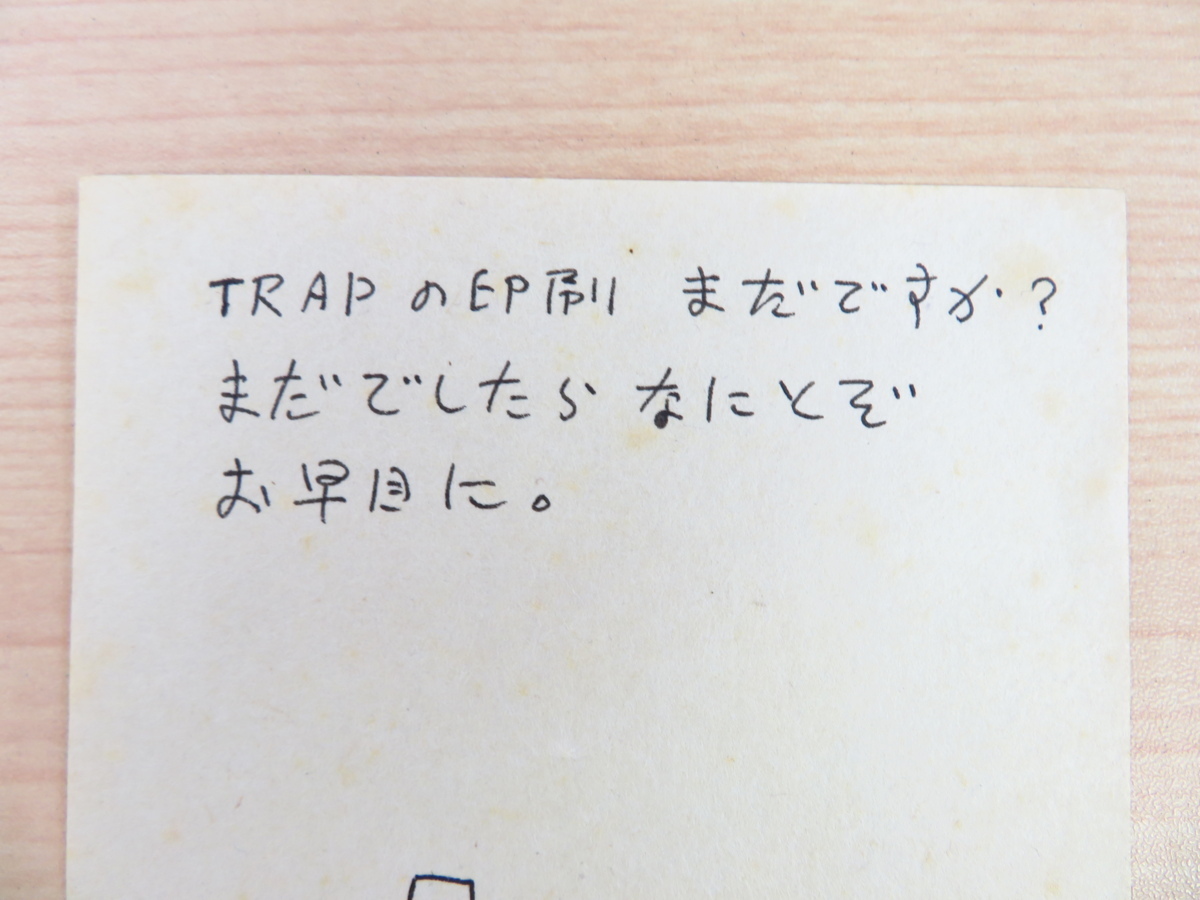 TRAPの印刷 まだですか?
まだでしたら なにとぞ
お早目に。